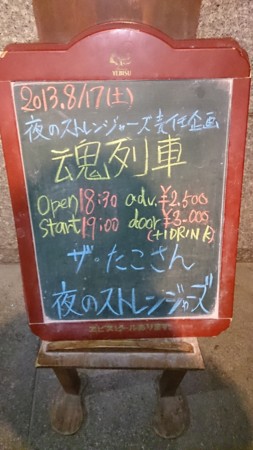 YEBISU
2013.8/17(土)
夜のストレンジャーズ責任企画
魂列車
Open 18:30 adv. ¥2.500
Start 19:00 door ¥3.000
(+1DRINK)
ザ・たこさん
夜のストレンジャーズ
ヱビスビールあります。